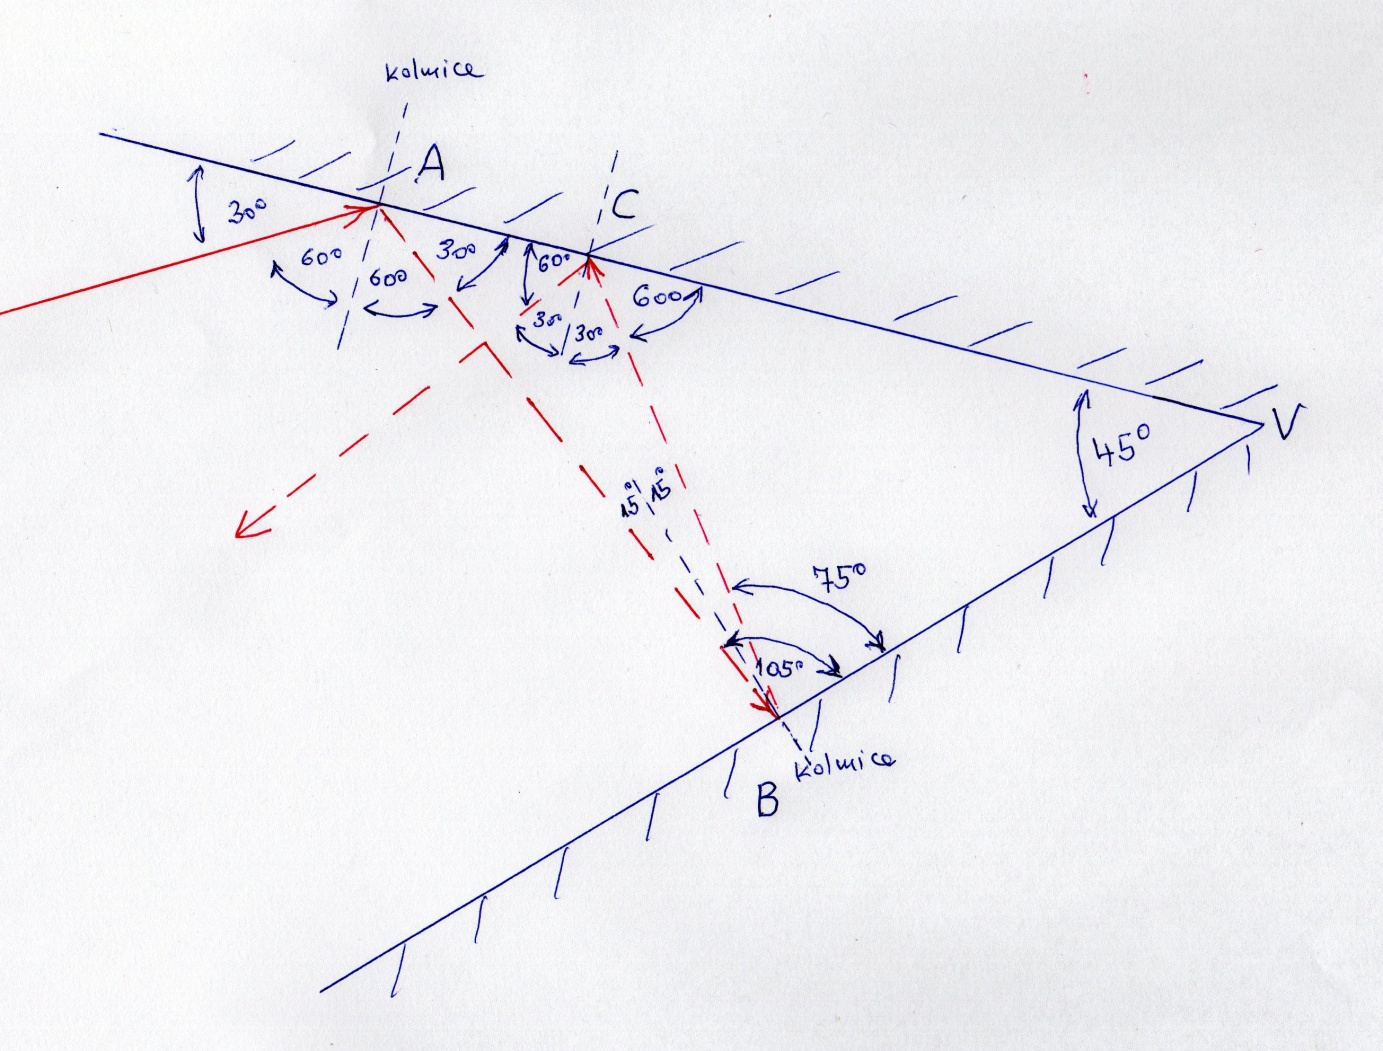 kolmice
A
C
30°
60°
60°
30°
60°
30°
30°
60°
V
45°
15°
15°
75°
105°
kolmice
B